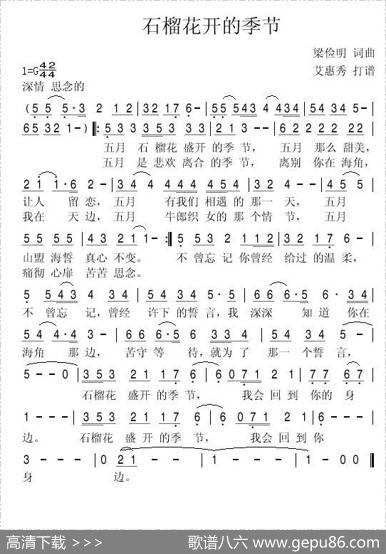 石榴花开的季节
梁俭明 词曲
1=G 42/44
艾惠秀 打谱
深情 思念的
(5 5 5·3 2 1 2 | 3 2 1 7 6 - | 5 5 5 4 3 4 4 | 3 2 1 6 5 - |
6 5 3 2 1 - ) ‖: 5 5 3 3 5 3 | 3 2 1 7 6 - | 5 5 5 4 3 4 4 |
五月 石 榴花 盛开 的季 节, 五月 那么 甜美,
五月 是 悲欢 离合 的季 节, 离别 你在 海角,
2 1 1· 6 2 - | 3 4 4 4 4 4 5 | 6 5 4 3 4 - | 4 5 5 -
让人 留 恋, 五月 有我们 相遇 的那 一 天, 五月
我在 天 边, 五月 牛郎织 女的 那个 情 节, 五月
5 4 5 3· 4 | 4 3 2 1 1 - :‖ 5 5 3 3 5 3 | 3 2 1 7 6 - |
山盟 海誓 真心 不变。 不 曾忘 记 你曾经 给过 的温 柔,
痛彻 心扉 苦苦 思念。
5 5 4 3 4 | 5 4 3 5 2 3 4 | 6 6 6 - 5 6 | 6· 5 3 4
不 曾忘 记, 曾经 许下 的誓 言, 我 深深 知道 你在
5 4 4· 3 - | 6 6 6 6 3 4 | 5 3 4 5 3 4 | 3 2 1 2 3 4 |
海角 那 边, 苦守 等 待, 就为了 那一 个誓 言,
5 - - 0 | 3 5 3 2 1 6 | 1 6 5 - | 6 0 7 1 2 | 7 7 6 7 |
石榴花 盛开 的季 节, 我会 回 到 你的 身
1 - - - | 3 5 3 2 1 6 | 1 6 5 - | 6 0 7 1 2 | 6 0 7 1 |
边。 石榴花 盛 开 的季 节, 我会 回 到 你
3 - - - | 0 2 1 - - | 1 - - - | 1 - - - | 1 - 0 0 ‖
身 边。
高清下载 >>>
歌谱八六 www.gepu86.com